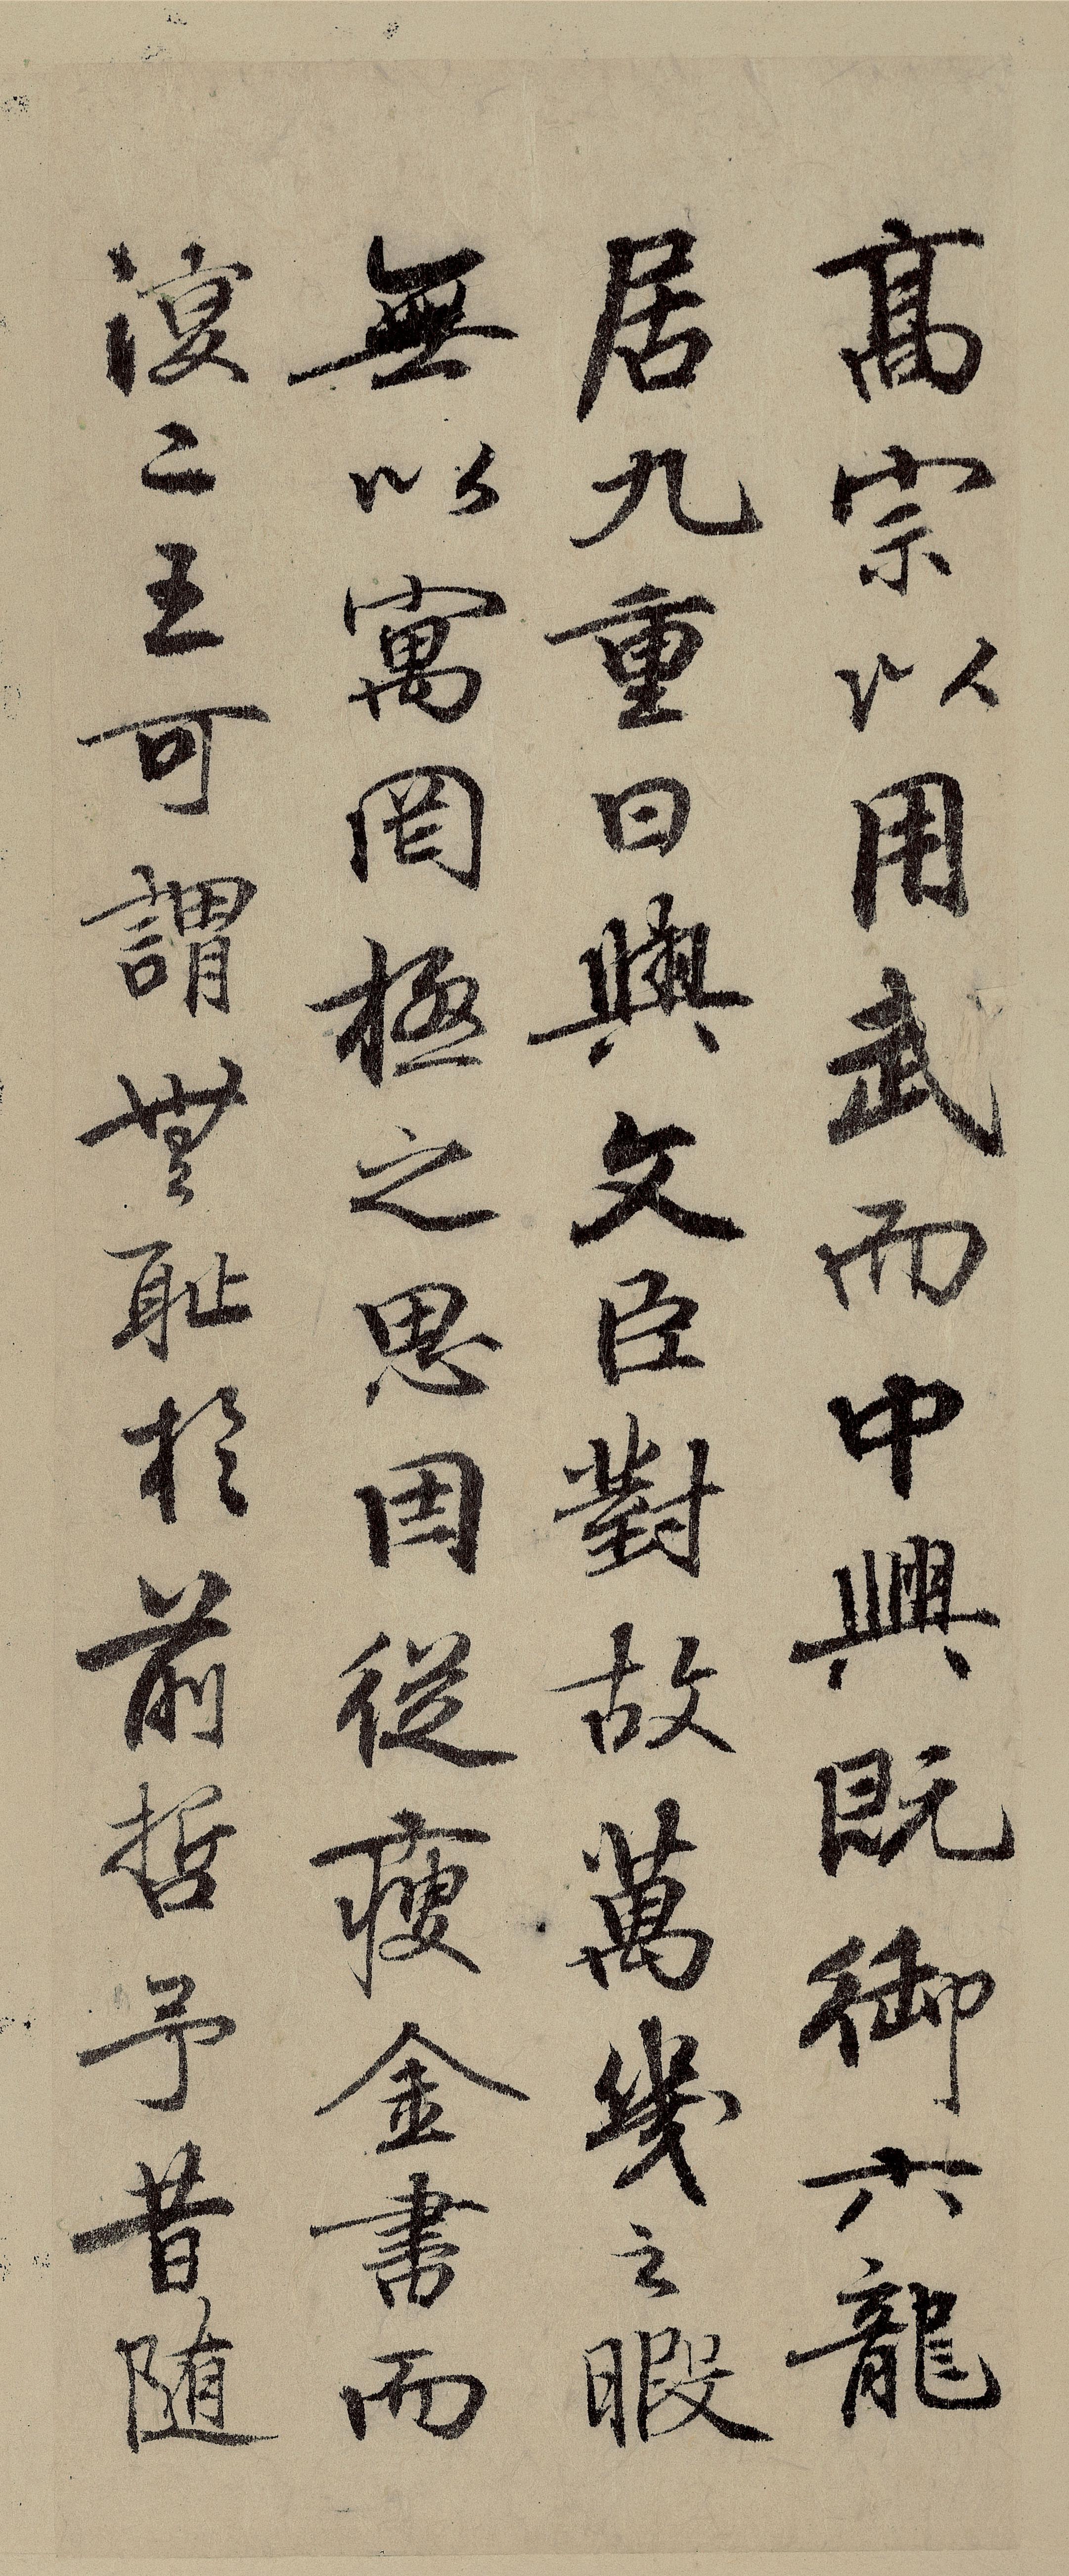 高宗以用武而中興既御六龍
居九重日與文臣對故萬幾之暇
無以寓罔極之思因從瘦金書而
溟二王可謂無恥於前哲予昔随